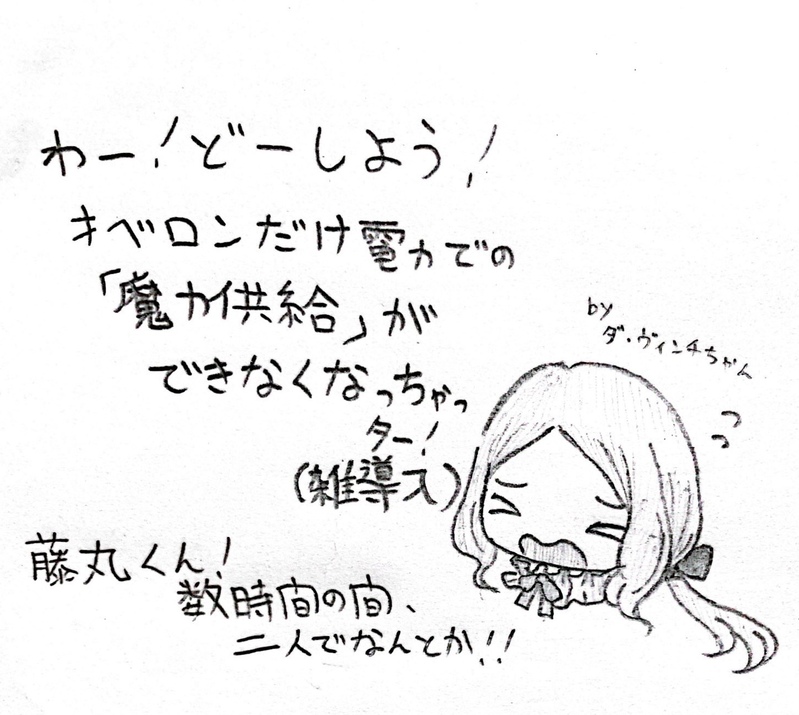 わー!どーしよう!
オベロンだけ電力での
「魔力供給」が
できなくなっちゃっ
ター!
(雑導入)
by
ダ・ヴィンチちゃん
藤丸くん!
数時間の間、
二人でなんとか!!